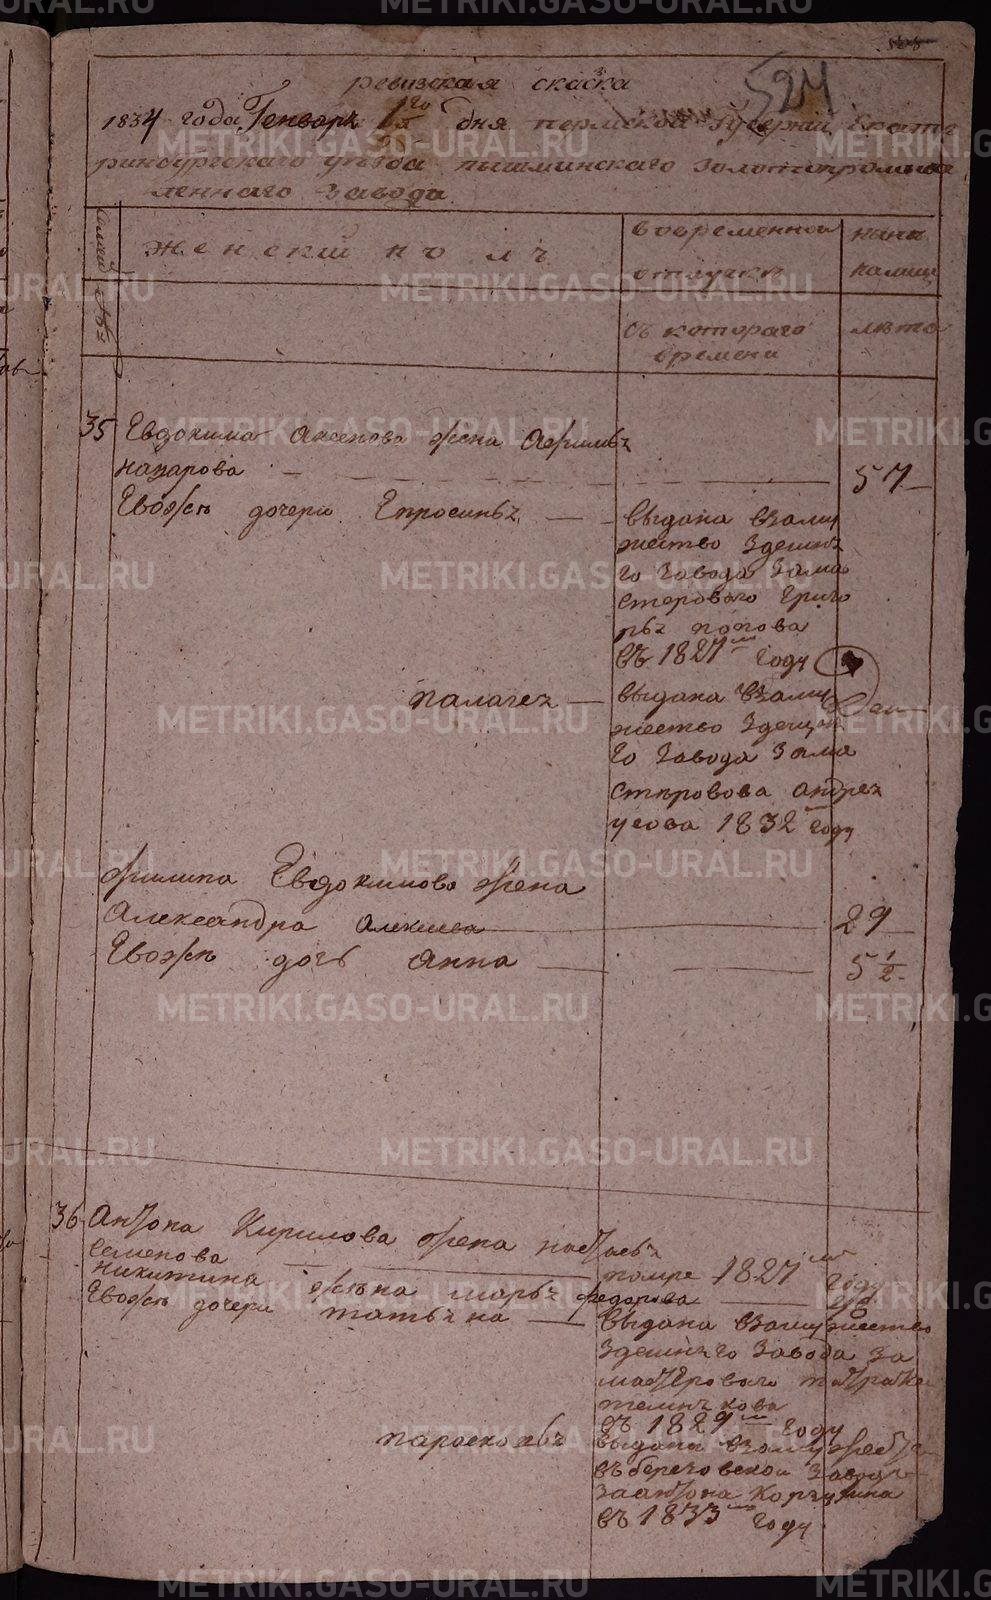 524
ревизская скаска
1834 года Генваря 1го дня пермской Губернии Екате
ринбургского уезда пышминскаго золотопромыш
леннаго завода
женский полъ
вовременной
отлучке
съ котораго
времени
лета
35 Евдокима Аксенова жена Афимья
назарова 57
Евожъ дочери Епросинья выдана взаму
жество здешня
го завода зама
стероваго Григо
рья попова
въ 1827м году
палагея выдана взаму
жество здешня
го завода зама
стировова андрея
усова 1832 году
Филипа Евдокимова жена
Александра алексеева 29
Евожъ дочь анна 5 1/2
36 Антона Кирилова жена настасья
семенова помре 1827м году
никитина жена марья федорова
Евожъ дочери татьяна выдана взамужество
здешняго завода за
мастероваго
въ 1829м году
парасковья выдана взамужество
въ березовской завод
заантона Корзухина
въ 1833м году
METRIKI.GASO-URAL.RU